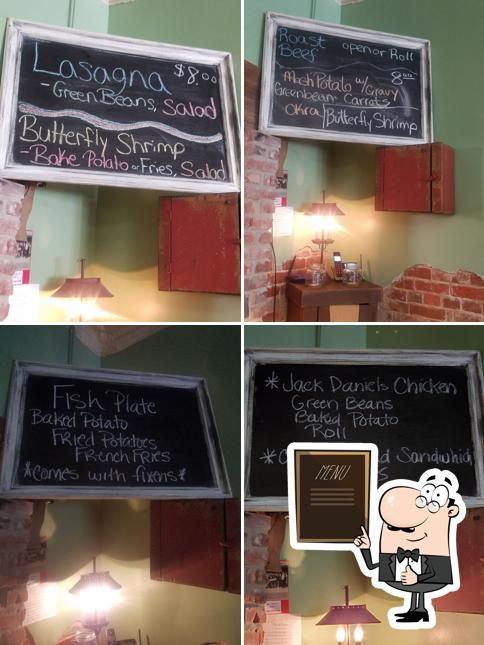 Lasagna $8.00
-Green Beans, Salad
Butterfly Shrimp
-Bake Potato or Fries, Salad
Roast Beef open or Roll
8.00
Mash Potato w/Gravy
Greenbean Carrats
Okra/Butterfly Shrimp
Fish Plate
Baked Potato
Fried Potatoes
French Fries
*Comes with fixens*
*Jack Daniels Chicken
Green Beans
Baked Potato
Roll
* Sandwhich
MENU